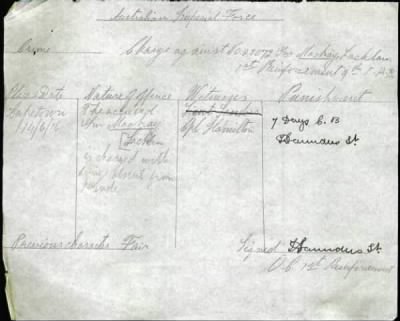 Australian Imperial Force
Crime Charge against No 2072 Pte Mackay Lachlan
1st Reinforcement 9th
Place Date Nature of Offence Witnesses Punishment
Capetown The accused
14/6/ Pte Mackay Cpl Hamilton 7 Days C. B
Lachlan H Saunders Lt.
is charged with
being absent from
Parade
Previous character Fair Signed H Saunders Lt.
O.C. 1st Reinforcement